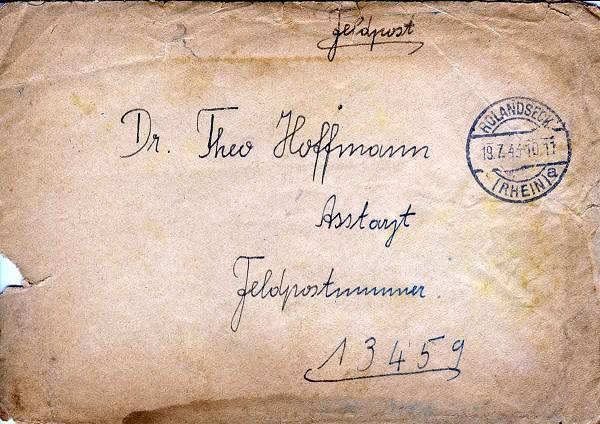 Feldpost
Dr. Theo Hoffmann
Asstarzt
Feldpostnummer
13459
ROLANDSECK
19.7.43-10-11
(RHEIN)
a